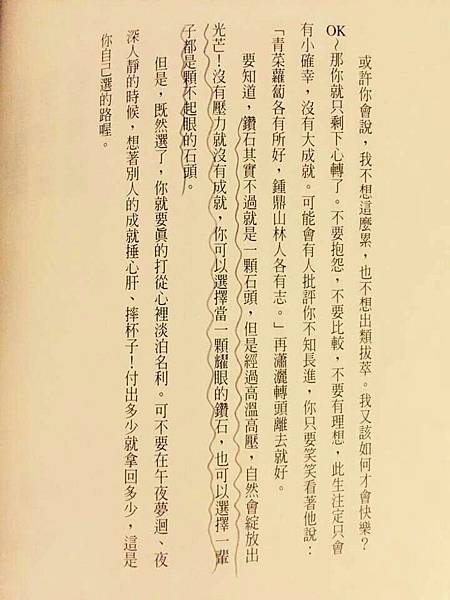 或許你會說，我不想這麼累，也不想出類拔萃。我又該如何才會快樂？
OK～那你就只剩下心轉了。不要抱怨，不要比較，不要有理想，此生注定只會
有小確幸，沒有大成就。可能會有人批評你不知長進，你只要笑笑看著他說：
「青菜蘿蔔各有所好，鍾鼎山林人各有志。」再瀟灑轉頭離去就好。
要知道，鑽石其實不過就是一顆石頭，但是經過高溫高壓，自然會綻放出
光芒！沒有壓力就沒有成就，你可以選擇當一顆耀眼的鑽石，也可以選擇一輩
子都是顆不起眼的石頭。
但是，既然選了，你就要真的打從心裡淡泊名利。可不要在午夜夢迴、夜
深人靜的時候，想著別人的成就捶心肝、摔杯子！付出多少就拿回多少，這是
你自己選的路喔。